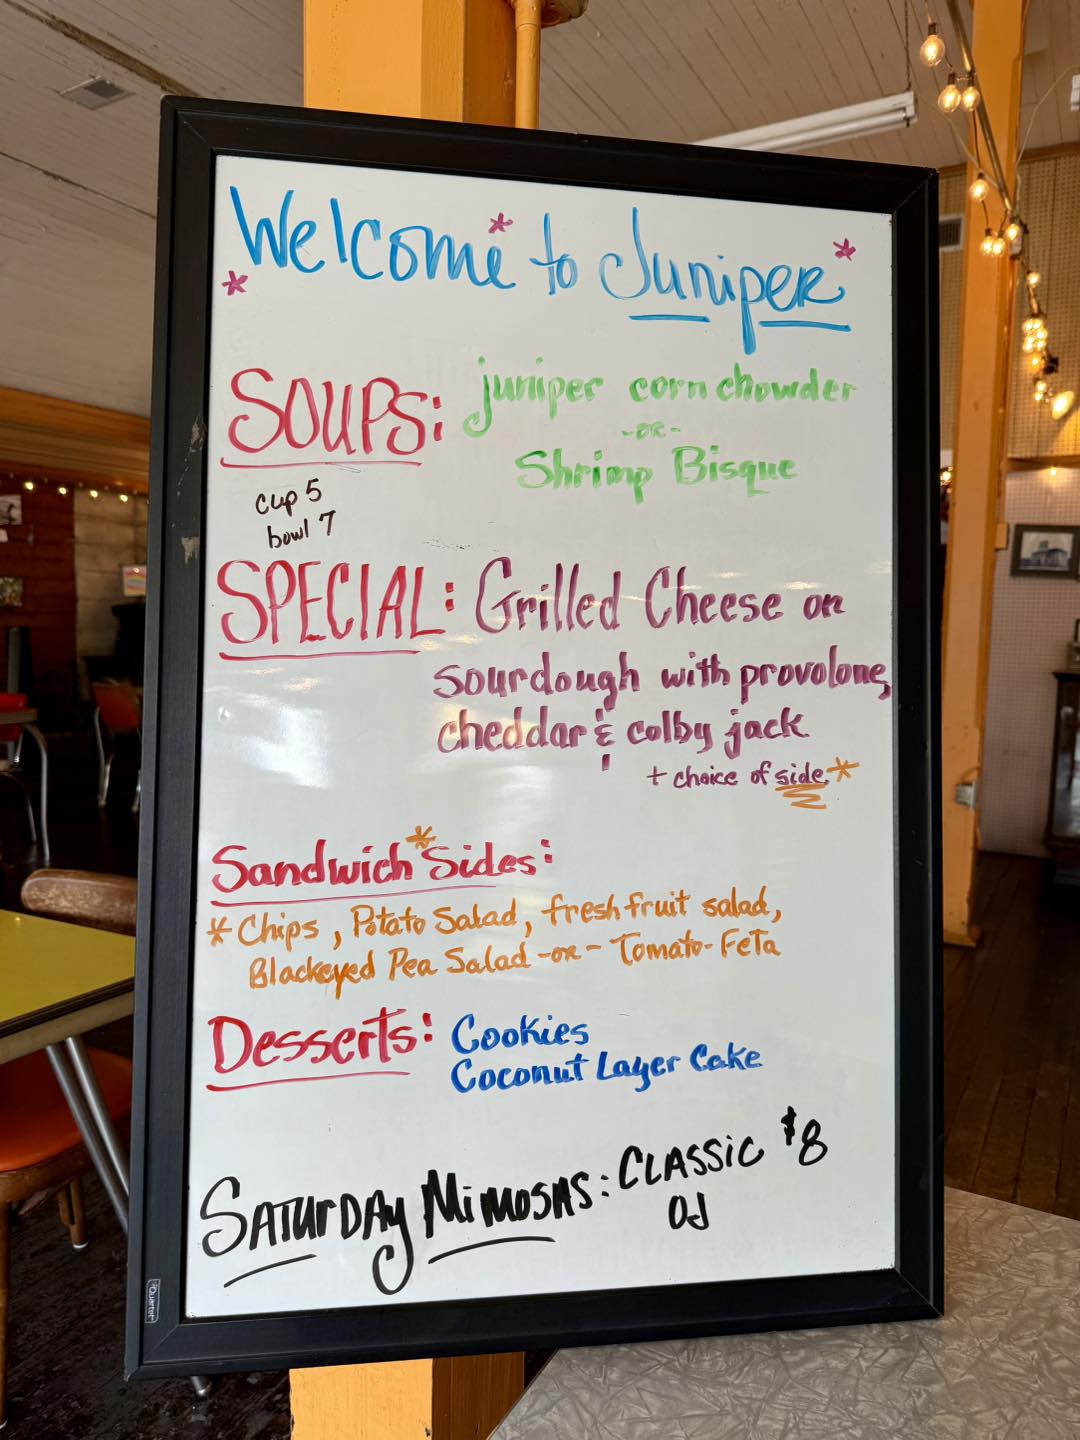 Welcome to Juniper
SOUPS: juniper corn chowder
-OR-
Shrimp Bisque
cup 5
bowl 7
SPECIAL: Grilled Cheese on
sourdough with provolone,
cheddar & colby jack
+ choice of side*
Sandwich* Sides:
* Chips, Potato Salad, fresh fruit salad,
Blackeyed Pea Salad -or- Tomato-Feta
Desserts: Cookies
Coconut Layer Cake
SATURDAY MIMOSAS: CLASSIC $8
OJ
Quartet